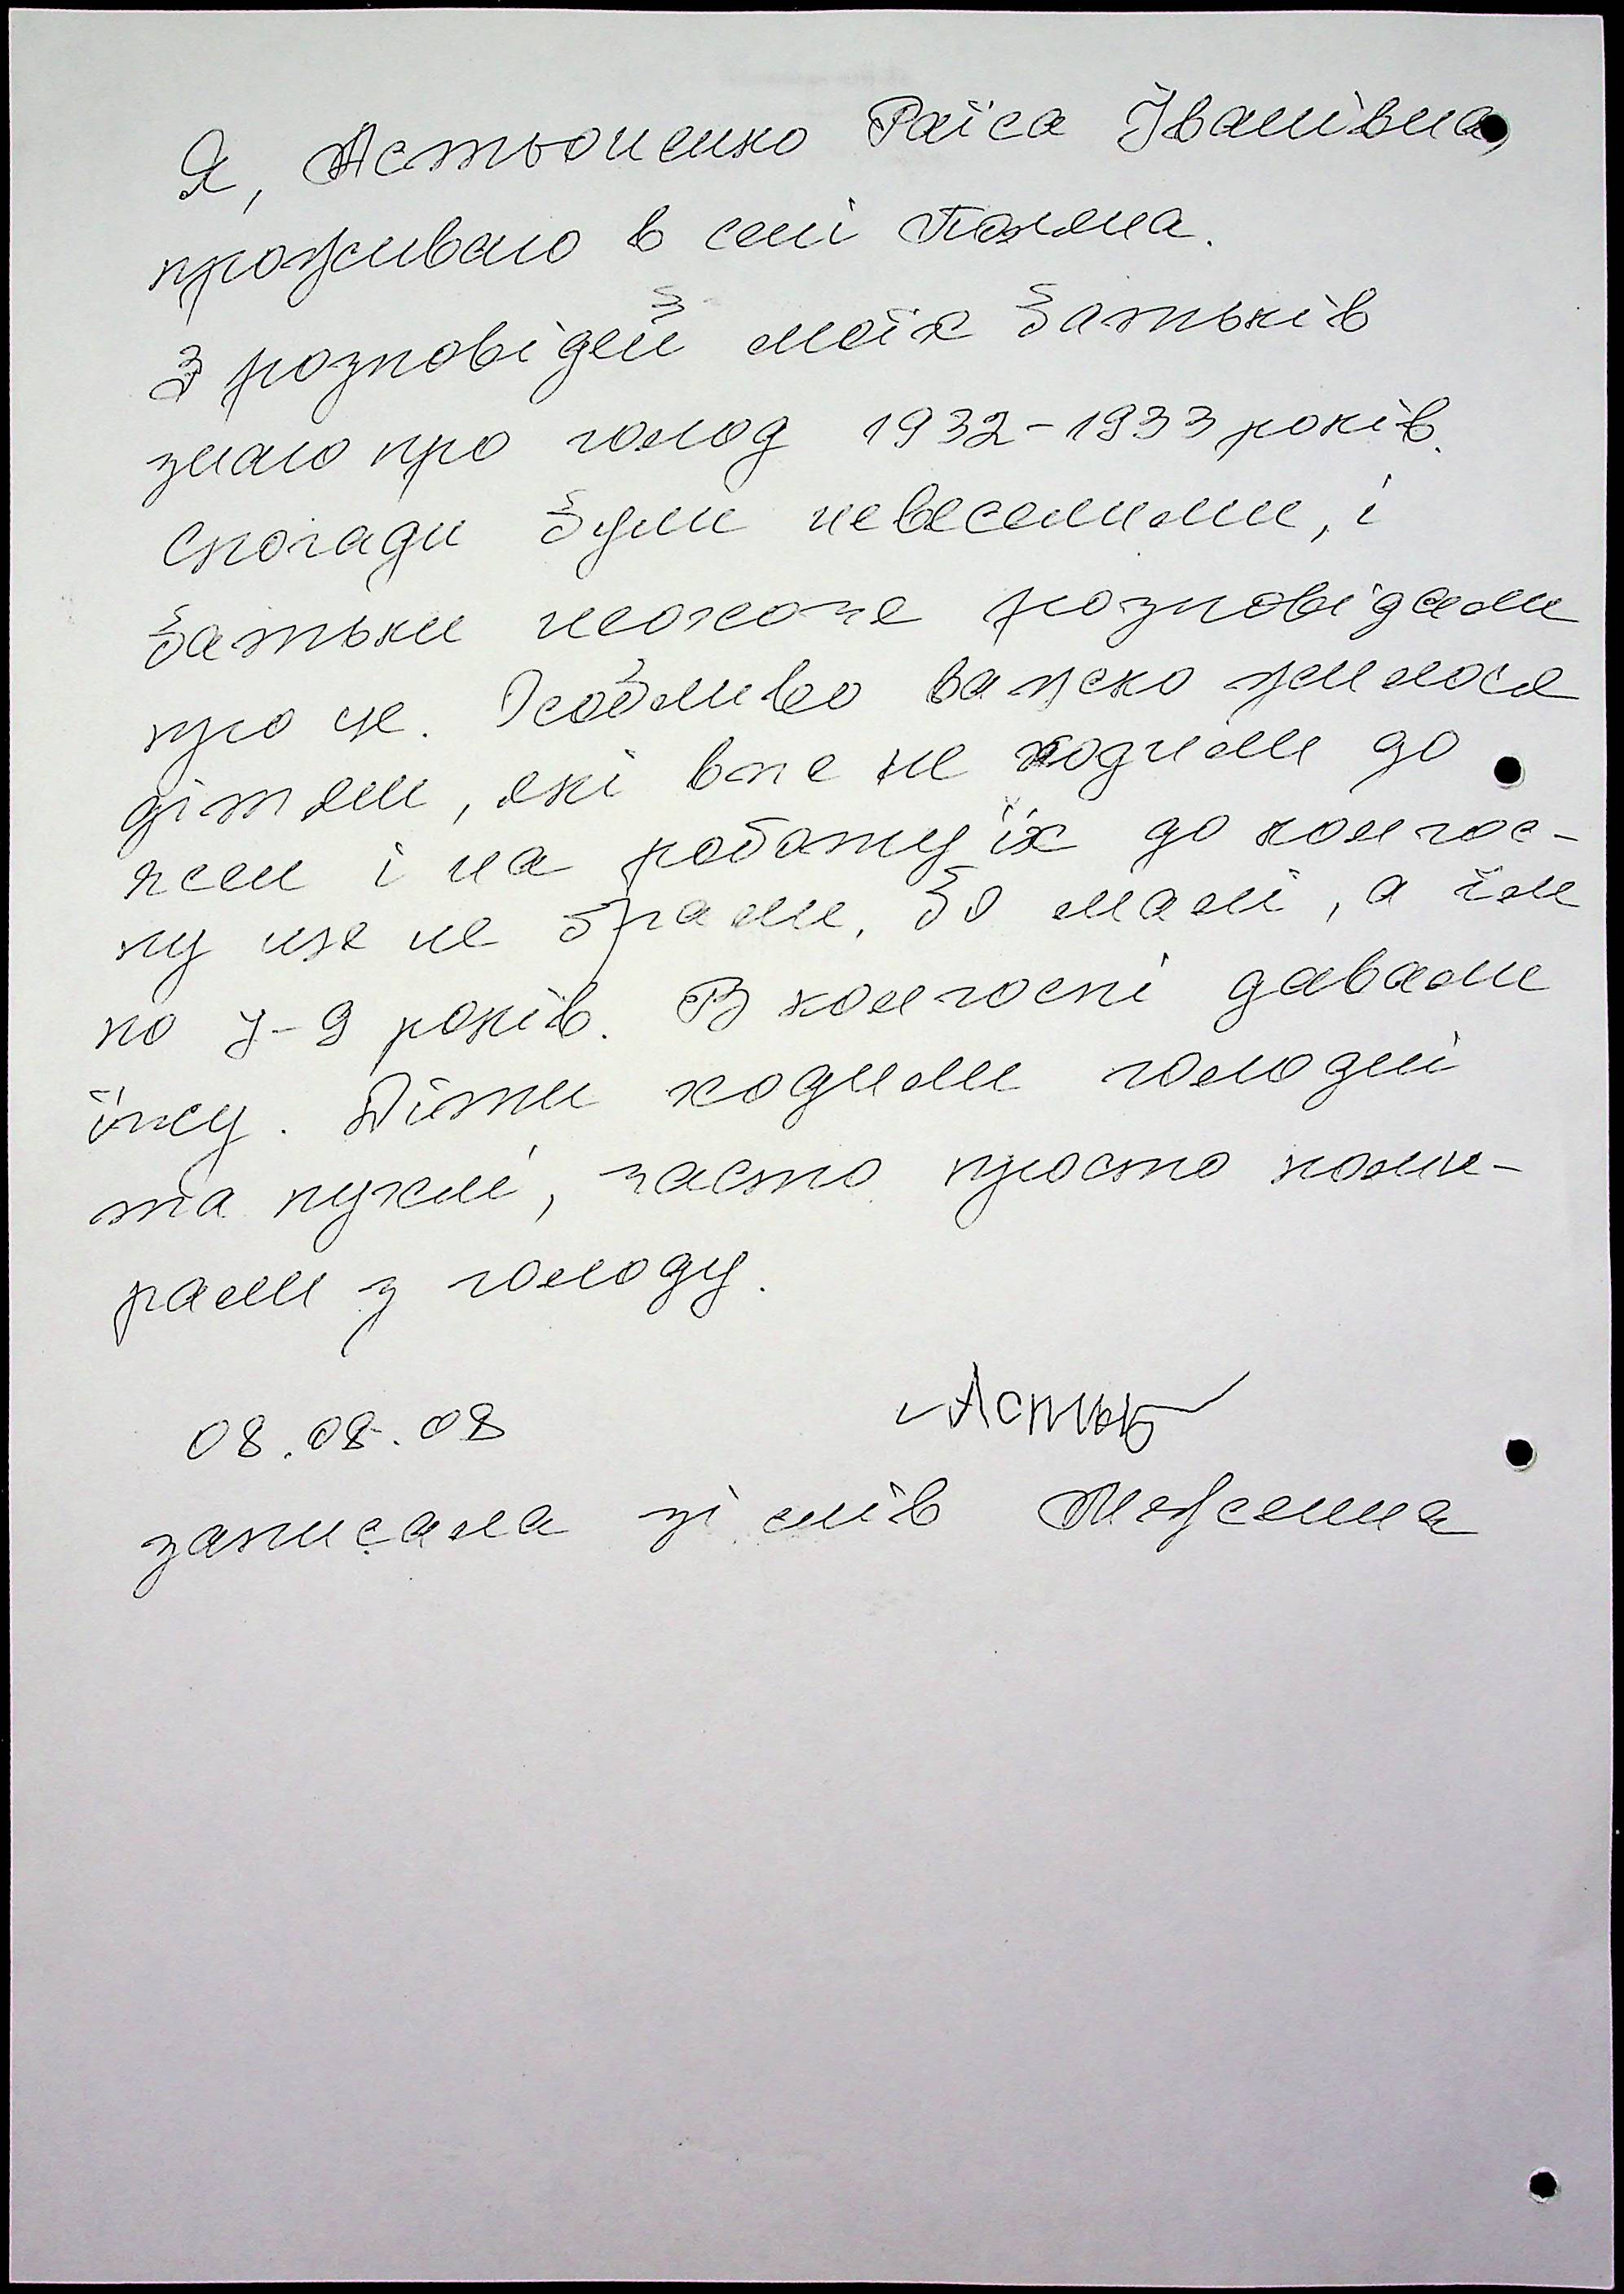 Я, Астьоненко Раїса Іванівна,
проживаю в селі Поляна.
З розповідей моїх батьків
знаю про голод 1932-1933 років.
Спогади були невеселими, і
батьки неохоче розповідали
про це. Особливо важко жилося
дітям, які вже не ходили до
ясел і на роботу їх до колгос-
пу ще не брали, бо малі, а їм
по 7-9 років. В колгоспі давали
їжу. Діти ходили голодні
та пухлі, часто просто поми-
рали з голоду.
08.08.08
записала зі слів